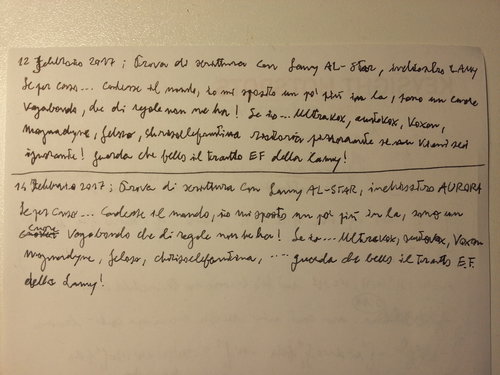 12 Febbraio 2017; Prova di scrittura con Lamy AL-Star, inchiostro LAMY
Se per caso... cadesse il mondo, io mi sposto un po' più in la, sono un cuore
Vagabondo, che di regole non ne ho! Se io... Ultravox, autovox, Voxon,
Magnadyne, Geloso, chrisoelefantina se non vieni sei
ignorante! Guarda che bello il tratto EF della Lamy!
14 Febbraio 2017; Prova di scrittura con Lamy AL-STAR, inchiostro AURORA
Se per caso... Cadesse il mondo, io mi sposto un po' più in la, sono un
cuore Vagabondo che di regole non ne ho! Se io... Ultravox, autovox, Voxon
Magnadyne, Geloso, chrisoelefantina, .... guarda che bello il tratto E.F.
della Lamy!